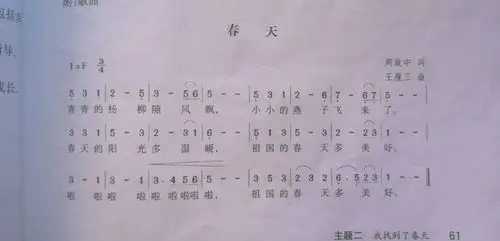 附:歌曲
春天
1=F 3/4
王 三 曲
5 3 1 | 2 - 5 | 3 - 5 6 | 5 - - | 5 3 1 | 2 - 6 | 7 - 6 7 | 5 - - |
青青的杨 柳随 风 飘， 小小的燕 子飞 来了。
3 3 1 | 5 - 3 | 2 - 3 1 | 6 - - | 5 3 1 | 5 - 3 | 2 - 2 3 | 1 - - |
春天的阳 光多 温 暖， 祖国的春 天多 美 好。
3 - 1 | 3 - 1 | 3 . 4 5 6 | 5 - - | 3 1 3 | 2 - 3 | 6 . 5 2 3 | 1 - - ‖
啦 啦啦 啦啦 啦啦啦啦， 祖国的春 天多 美 好。
成长。
主题二 我找到了春天 61